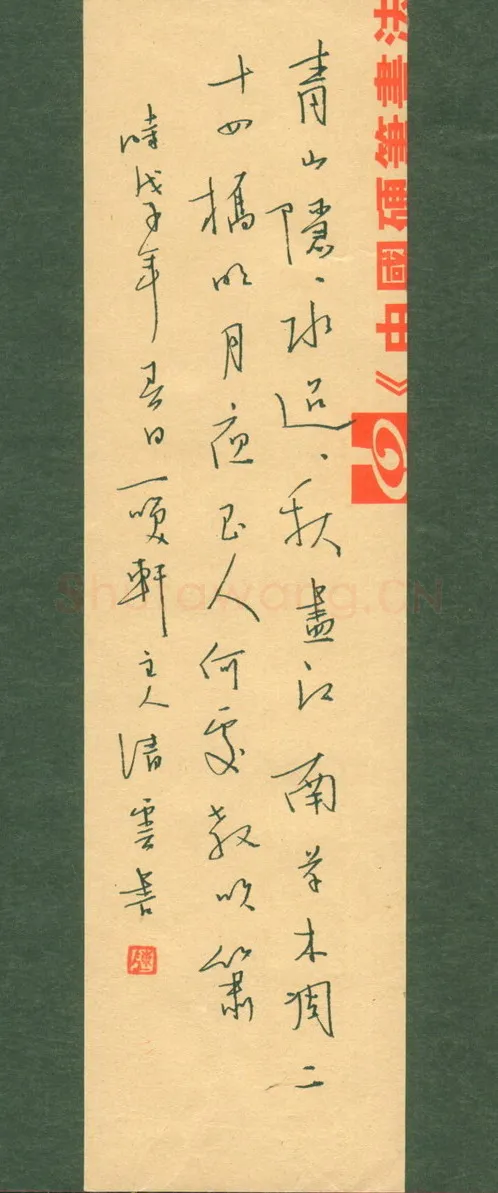 《中國硬筆書法
青山隱、水迢、秋盡江南草木凋二
十四橋明月夜玉人何處教吹簫
時戊子年春日一軒主人清雲書
Shufawang.CN